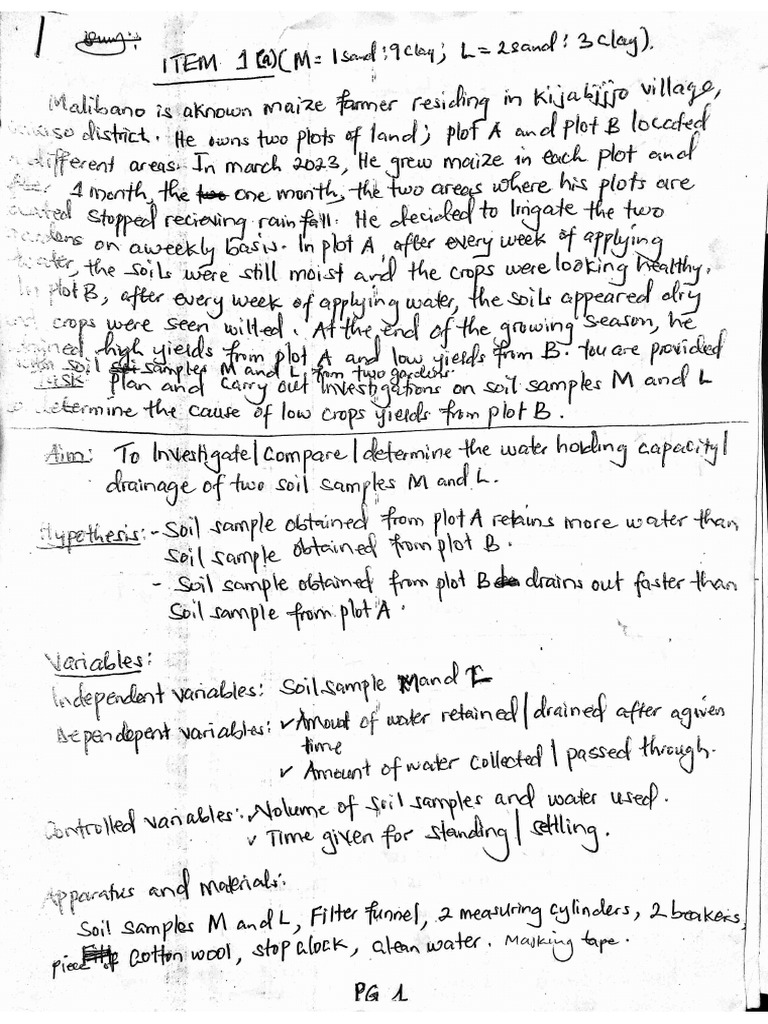 ITEM 1(a) (M = 1 sand : 9 clay ; L = 2 sand : 3 clay).
Malibano is aknown maize farmer residing in Kijabijjo village,
district. He owns two plots of land; plot A and plot B located
different areas. In march 2023, He grew maize in each plot and
After 1 month, the one month, the two areas where his plots are
located stopped recieving rainfall. He decided to Irrigate the two
gardens on aweekly basis. In plot A, after every week of applying
water, the soils were still moist and the crops were looking healthy.
In plot B, after every week of applying water, the soils appeared dry
and crops were seen wilted. At the end of the growing season, he
high yields from plot A and low yields from B. You are provided
with soil samples M and L, from two gardens.
Task plan and carry out Investigations on soil samples M and L
to determine the cause of low crops yields from plot B.
Aim: To Investigate/compare/determine the water holding capacity/
drainage of two soil samples M and L.
Hypothesis:- Soil sample obtained from plot A retains more water than
soil sample obtained from plot B.
- Soil sample obtained from plot B drains out faster than
Soil sample from plot A.
Variables:
Independent variables: Soil sample M and L
Dependent variables: ✓ Amount of water retained/drained after agiven
time
✓ Amount of water collected/passed through.
Controlled variables: ✓ Volume of soil samples and water used.
✓ Time given for standing/settling.
Apparatus and materials:
Soil samples M and L, Filter funnel, 2 measuring cylinders, 2 beakers,
piece of cotton wool, stop clock, clean water. Masking tape.
PG 1